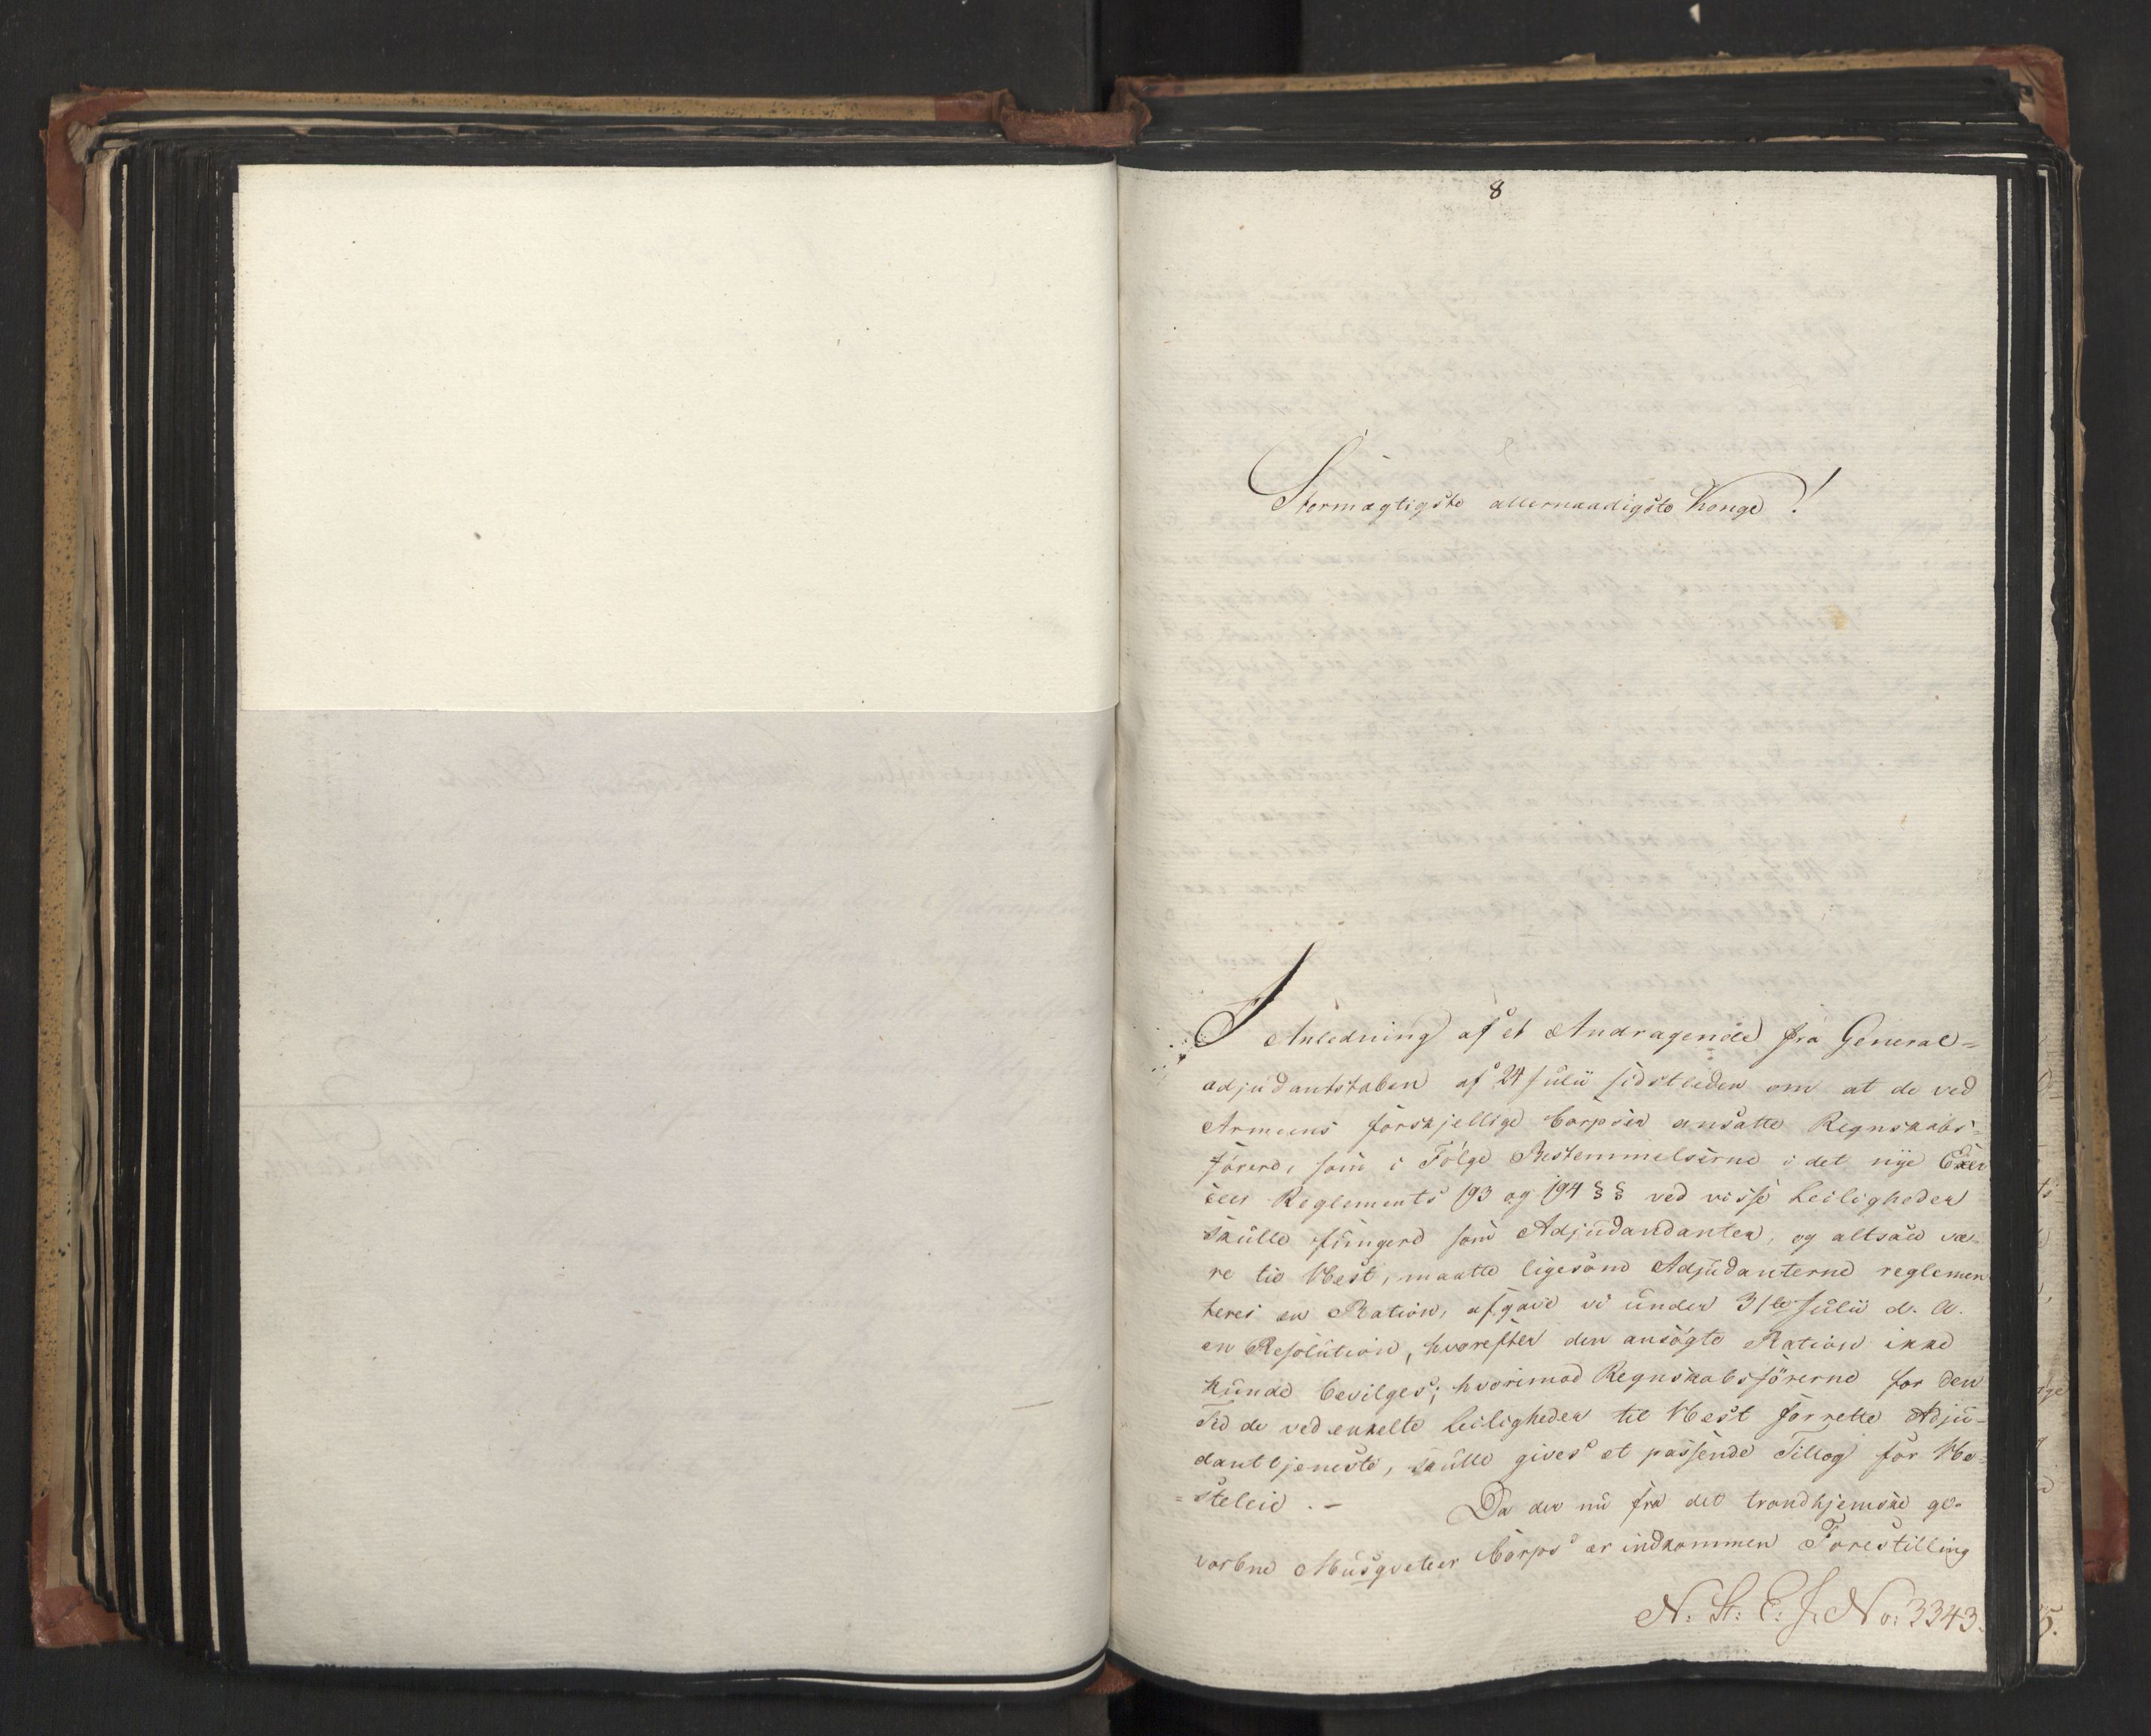 8
Stormægtigste allernaadigste Konge!
I Anledning af et Andragende fra General-
adjudantstaben af 24 Julii sidstleden om at de ved
Armeens forskjellige Corpser ansatte Regnskabs-
förere, som i Fölge Bestemmelserne i det nye Exer
ceer Reglements 193 og 194 §§ ved visse Leiligheder
skulle fungere som Adjudandanter, og altsaa væ-
re til Hest, maatte ligesom Adjudanterne reglemen
teres en Ration, afgave vi under 31te Julii d. A.
en Resolution, hvorefter den ansögte Ration ikke
kunde bevilges; hvorimod Regnskabsförerne for den
Tid de ved enkelte Leiligheder til Hest forrette Adju-
danttjeneste, skulle gives et passende Tillæg for He-
=steleie. - Da der nu fra det trondhjemske ge-
vorbne Musqveteer Corps er indkommen Forestilling
N. St: E: J. No: 3343.